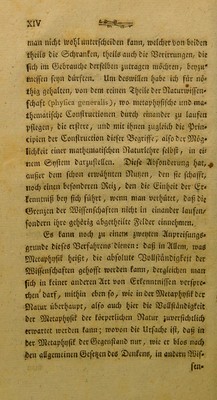 XIV
man nicht wohl unterscheiden kann, welcher von beiden
theils die Schranken, theils auch die Verirrungen, die
sich im Gebrauche derselben zutragen möchten, beyzu-
messen seyn dürften. Um deswillen habe ich für nö-
thig gehalten, von dem reinen Theile der Naturwissen-
schaft (physica generalis), wo metaphysische und ma-
thematische Constructionen durch einander zu laufen
pflegen, die erstere, und mit ihnen zugleich die Princi-
pien der Construction dieser Begriffe, also der Mög-
lichkeit einer mathematischen Naturlehre selbst, in ei-
nem System darzustellen. Diese Absonderung hat,
außer dem schon erwähnten Nutzen, den sie schafft,
noch einen besonderen Reiz, den die Einheit der Er-
kenntniß bey sich führt, wenn man verhütet, daß die
Grenzen der Wissenschaften nicht in einander laufen,
sondern ihre gehörig abgetheilte Felder einnehmen.
Es kann noch zu einem zweyten Anpreisungs-
grunde dieses Verfahrens dienen: daß in Allem, was
Metaphysik heißt, die absolute Vollständigkeit der
Wissenschaften gehofft werden kann, dergleichen man
sich in keiner anderen Art von Erkenntnissen verspre-
chen darf, mithin eben so, wie in der Metaphysik der
Natur überhaupt, also auch hier die Vollständigkeit
der Metaphysik der körperlichen Natur zuversichtlich
erwartet werden kann; wovon die Ursache ist, daß in
der Metaphysik der Gegenstand nur, wie er blos nach
den allgemeinen Gesetzen des Denkens, in andern Wis-
sen-